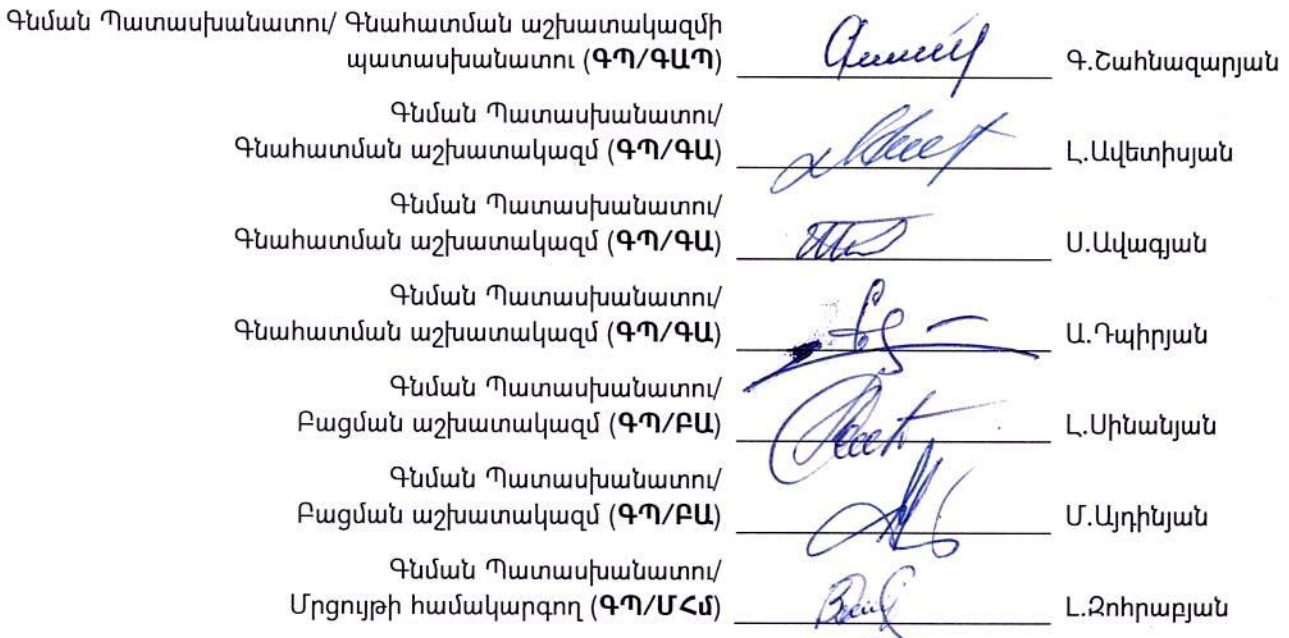 Գնման Պատասխանատու/ Գնահատման աշխատակազմի
պատասխանատու (ԳՊ/ԳԱՊ) Գ.Շահնազարյան
Գնման Պատասխանատու/
Գնահատման աշխատակազմ (ԳՊ/ԳԱ) Լ.Ավետիսյան
Գնման Պատասխանատու/
Գնահատման աշխատակազմ (ԳՊ/ԳԱ) Ս.Ավագյան
Գնման Պատասխանատու/
Գնահատման աշխատակազմ (ԳՊ/ԳԱ) Ա.Դպիրյան
Գնման Պատասխանատու/
Բացման աշխատակազմ (ԳՊ/ԲԱ) Լ.Սինանյան
Գնման Պատասխանատու/
Բացման աշխատակազմ (ԳՊ/ԲԱ) Մ.Այդինյան
Գնման Պատասխանատու/
Մրցույթի համակարգող (ԳՊ/ՄՀմ) Լ.Զոհրաբյան